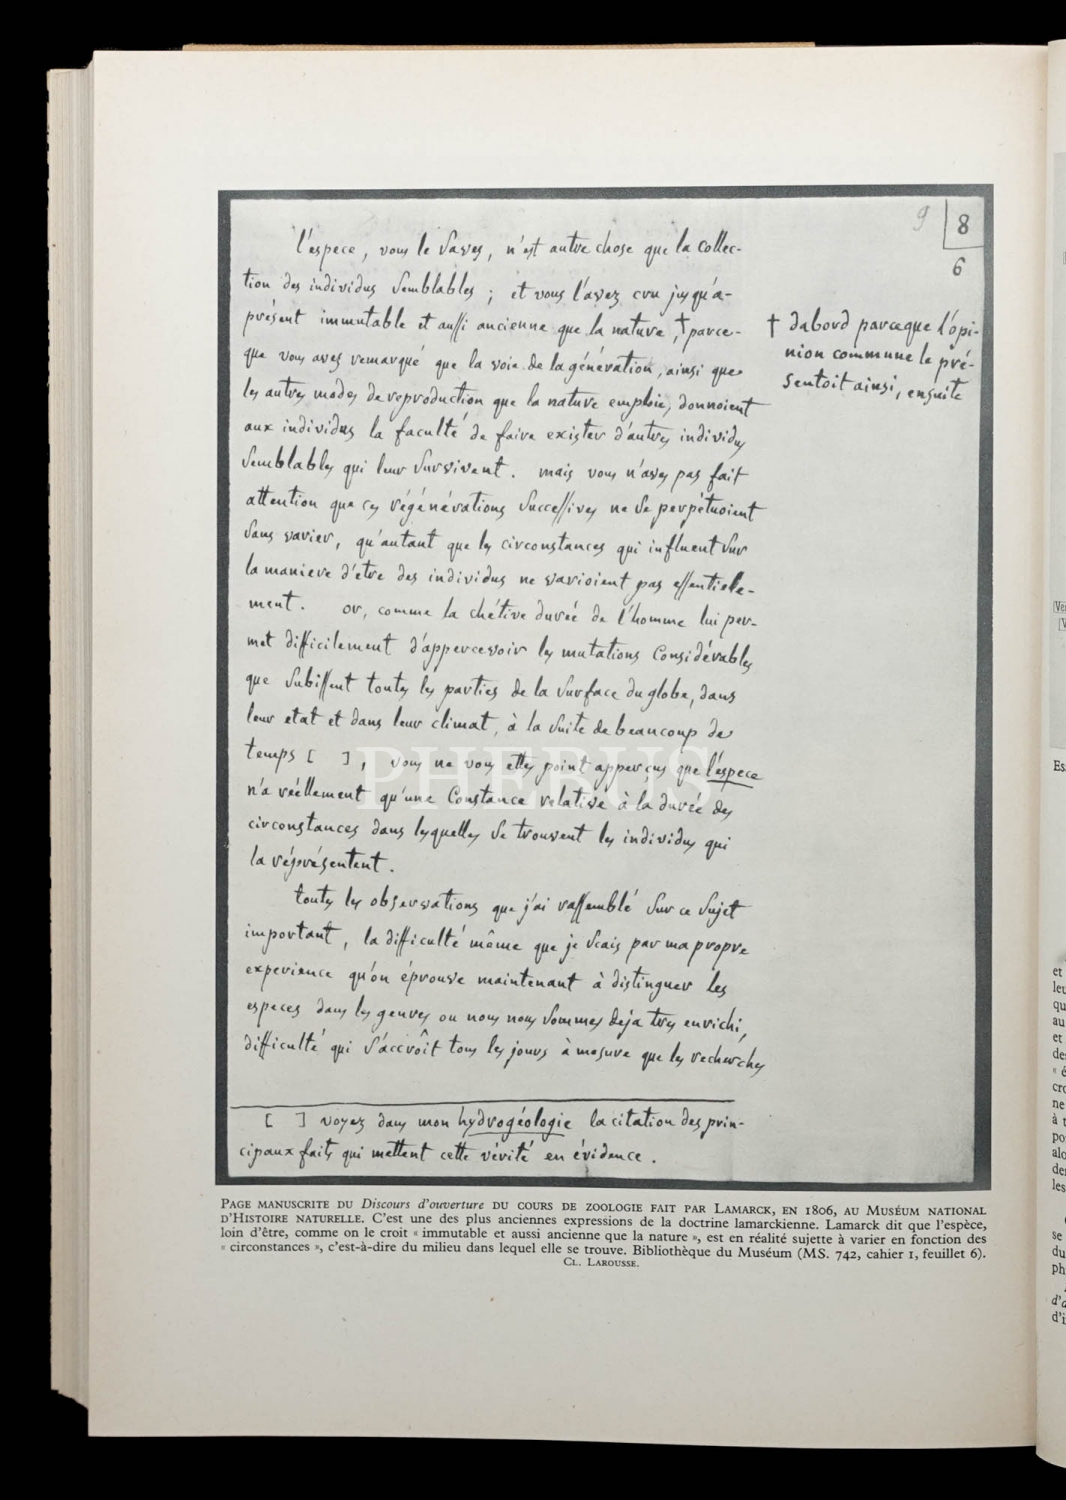 9
8
6
l'espece, vous le savez, n'est autre chose que la collec-
tion des individus semblables ; et vous l'avez cru jusqu'à-
présent immutable et aussi ancienne que la nature, † parce-
que vous avez remarqué que la voie de la génération, ainsi que
les autres modes de reproduction que la nature emploie, donnoient
aux individus la faculté de faire exister d'autres individus
semblables qui leur survivent. mais vous n'avez pas fait
attention que ces régénérations successives ne se perpétuoient
sans varier, qu'autant que les circonstances qui influent sur
la maniere d'etre des individus ne varioient pas essentiele-
ment. or, comme la chétive durée de l'homme lui per-
met difficilement d'appercevoir les mutations considérables
que subissent toutes les parties de la surface du globe, dans
leur etat et dans leur climat, à la suite de beaucoup de
temps [ ], vous ne vous etes point apperçus que l'espece
n'a réellement qu'une constance relative à la durée des
circonstances dans lesquelles se trouvent les individus qui
la réprésentent.
toutes les observations que j'ai rassemblé sur ce sujet
important, la difficulté même que je scais par ma propre
experience qu'on éprouve maintenant à distinguer les
especes dans les genres ou nous nous sommes deja tres enrichi,
difficulté qui s'accroît tous les jours à mesure que les recherches
† dabord parceque l'opi-
nion commune le pré-
sentoit ainsi, ensuite
[ ] voyez dans mon hydrogéologie la citation des prin-
cipaux faits qui mettent cette vérité en évidence.
PHEBUS
PAGE MANUSCRITE DU Discours d'ouverture DU COURS DE ZOOLOGIE FAIT PAR LAMARCK, EN 1806, AU MUSÉUM NATIONAL
D'HISTOIRE NATURELLE. C'est une des plus anciennes expressions de la doctrine lamarckienne. Lamarck dit que l'espèce,
loin d'être, comme on le croit « immutable et aussi ancienne que la nature », est en réalité sujette à varier en fonction des
« circonstances », c'est-à-dire du milieu dans lequel elle se trouve. Bibliothèque du Muséum (MS. 742, cahier 1, feuillet 6).
CL. LAROUSSE.